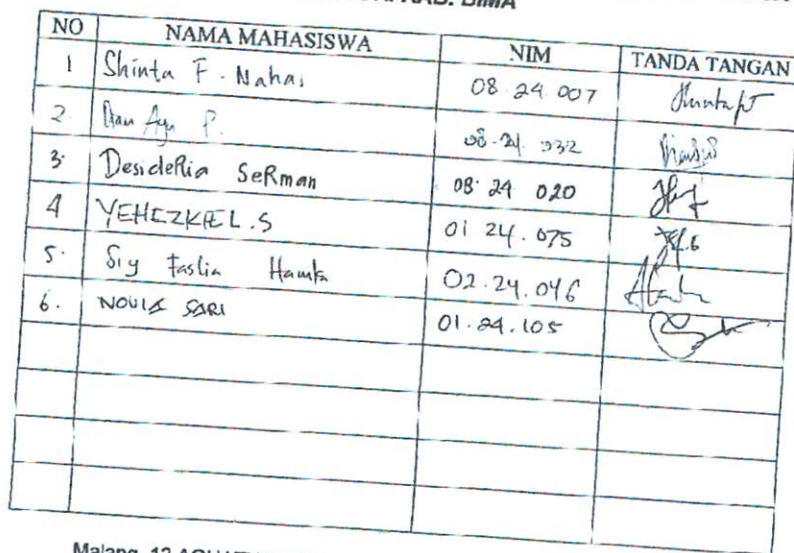 KAB. BIMA
NO NAMA MAHASISWA NIM TANDA TANGAN
1 Shinta F. Nahas 08.24.007
2. Ayu P. 08.24.032
3. DesideRia SeRman 08.24.020
4 YEHEZKIEL.S 01.24.075
5. Siy Faslia Hamka 02.24.046
6. NOVIA SARI 01.24.105
Malang, 12